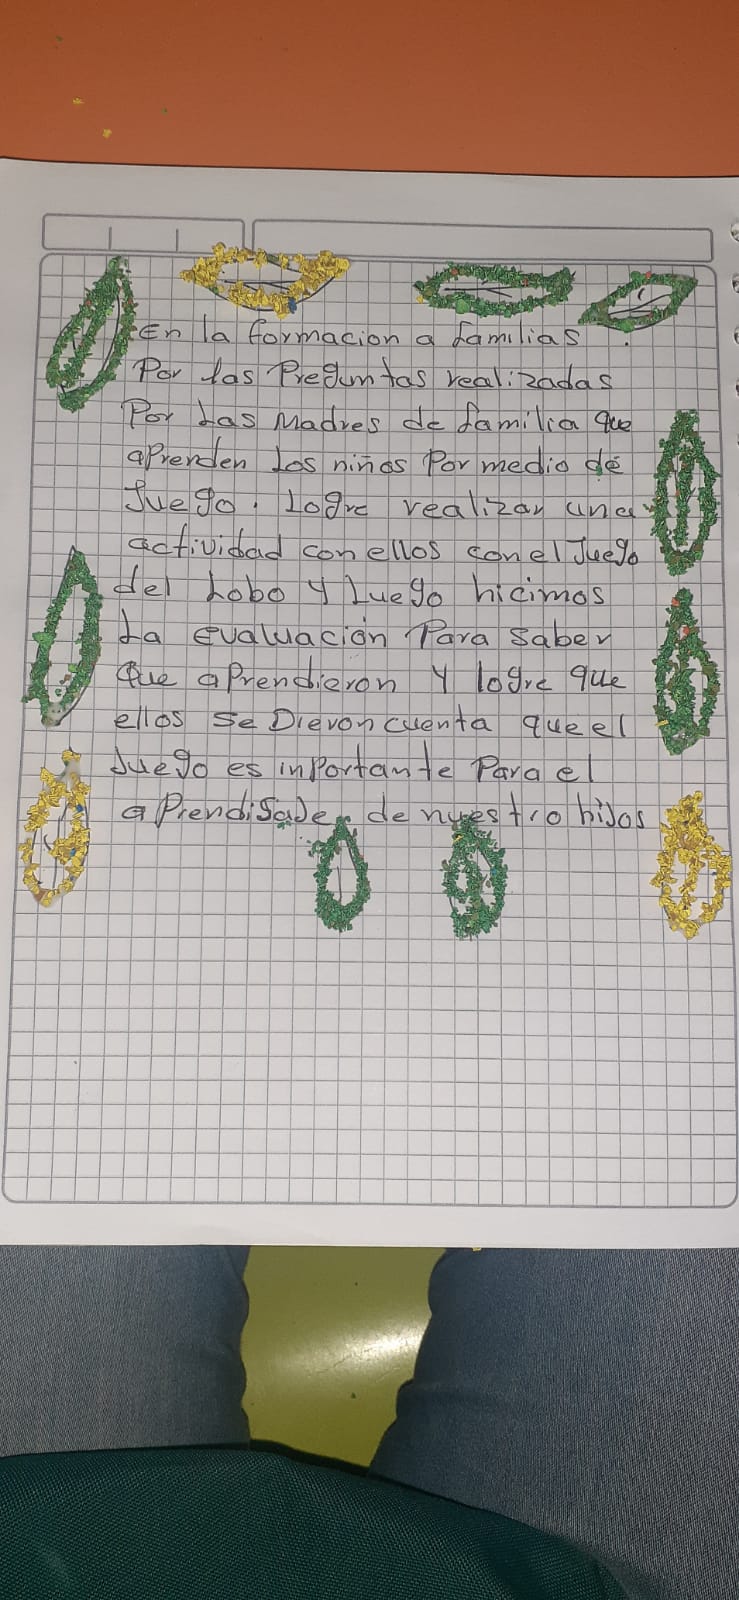 En la formacion a familias.
Por las Preguntas realizadas
Por Las Madres de familia que
aprenden Los niños Por medio de
Juego. Logre realizar una
actividad con ellos con el Juego
del Lobo y Luego hicimos
La evaluación Para saber
Que aprendieron y logre que
ellos se Dieron cuenta que el
Juego es inportante Para el
aprendisaje de nuestro hijos